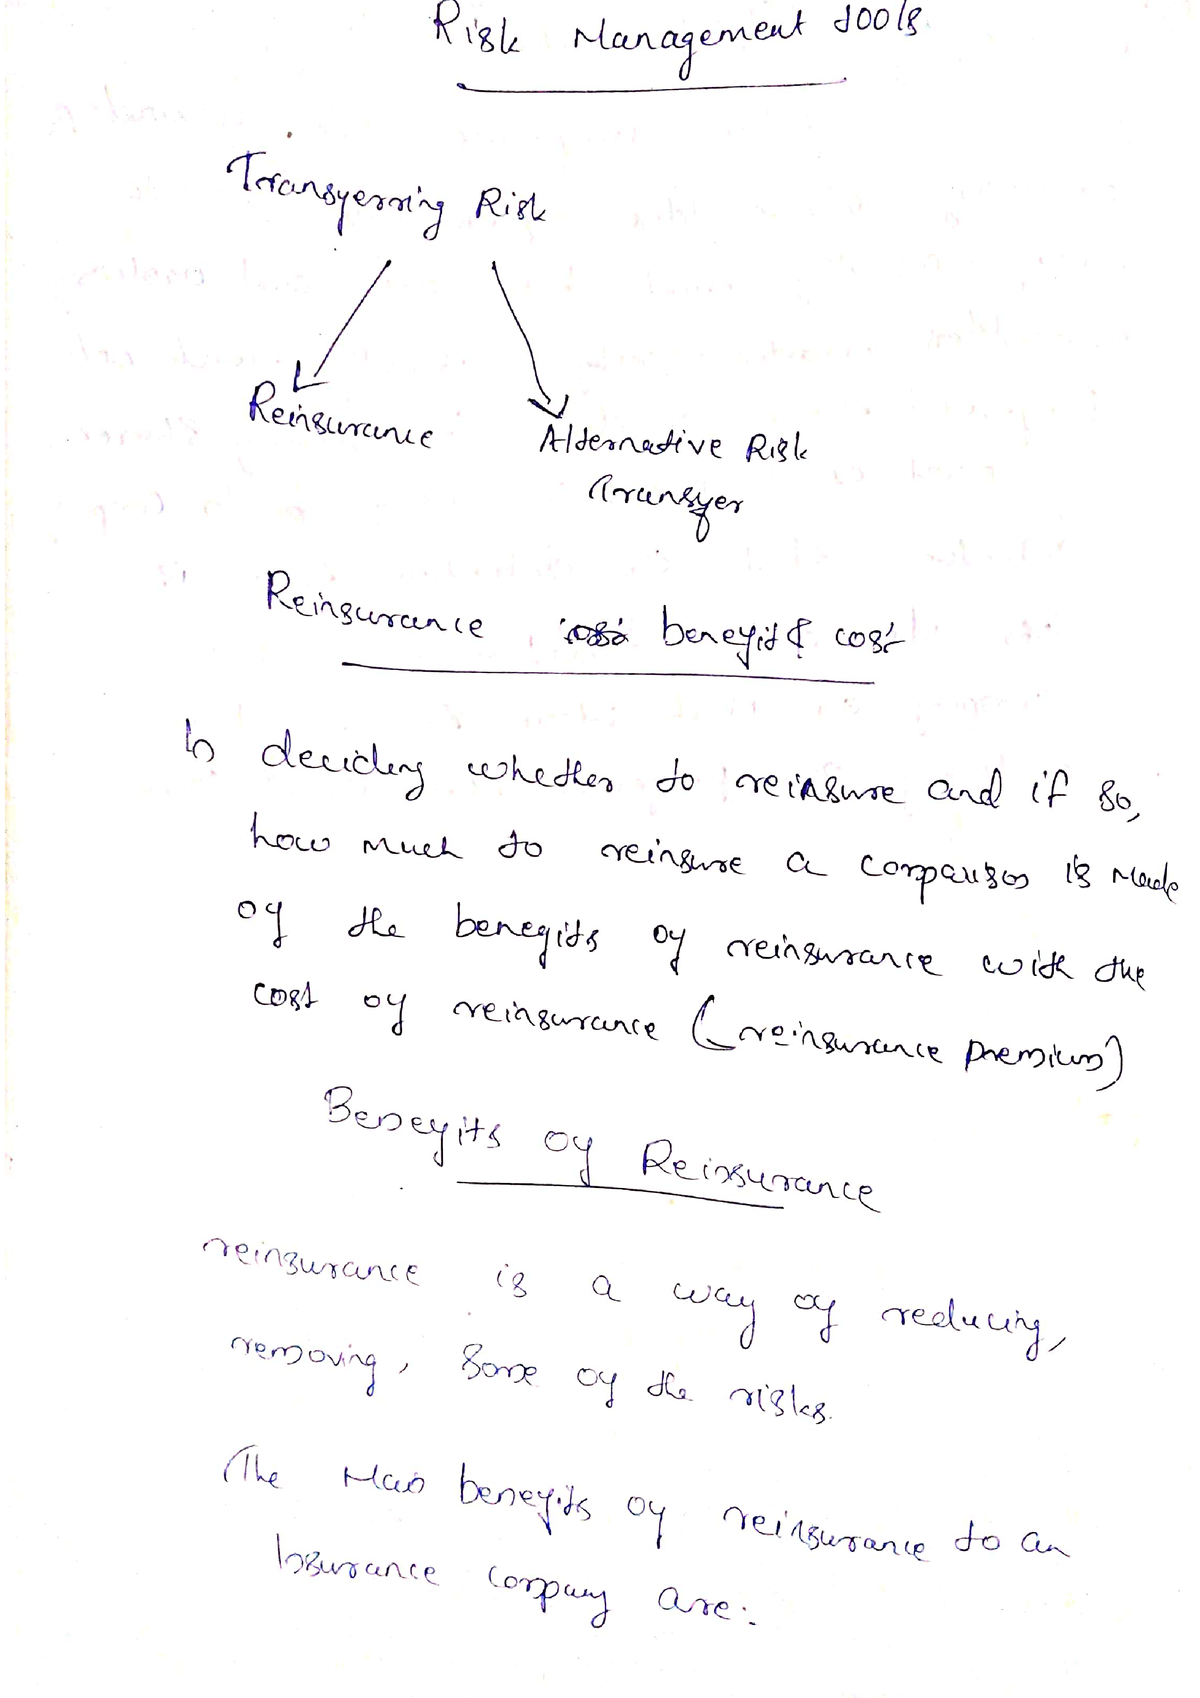 Risk Management Tools
Transferring Risk
Reinsurance
Alternative Risk
Transfer
Reinsurance benefit & cost
In deciding whether to reinsure and if so,
how much to reinsure a comparison is made
of the benefits of reinsurance with the
cost of reinsurance (reinsurance premium)
Benefits of Reinsurance
reinsurance is a way of reducing,
removing, some of the risks.
The Main benefits of reinsurance to an
Insurance company are:-